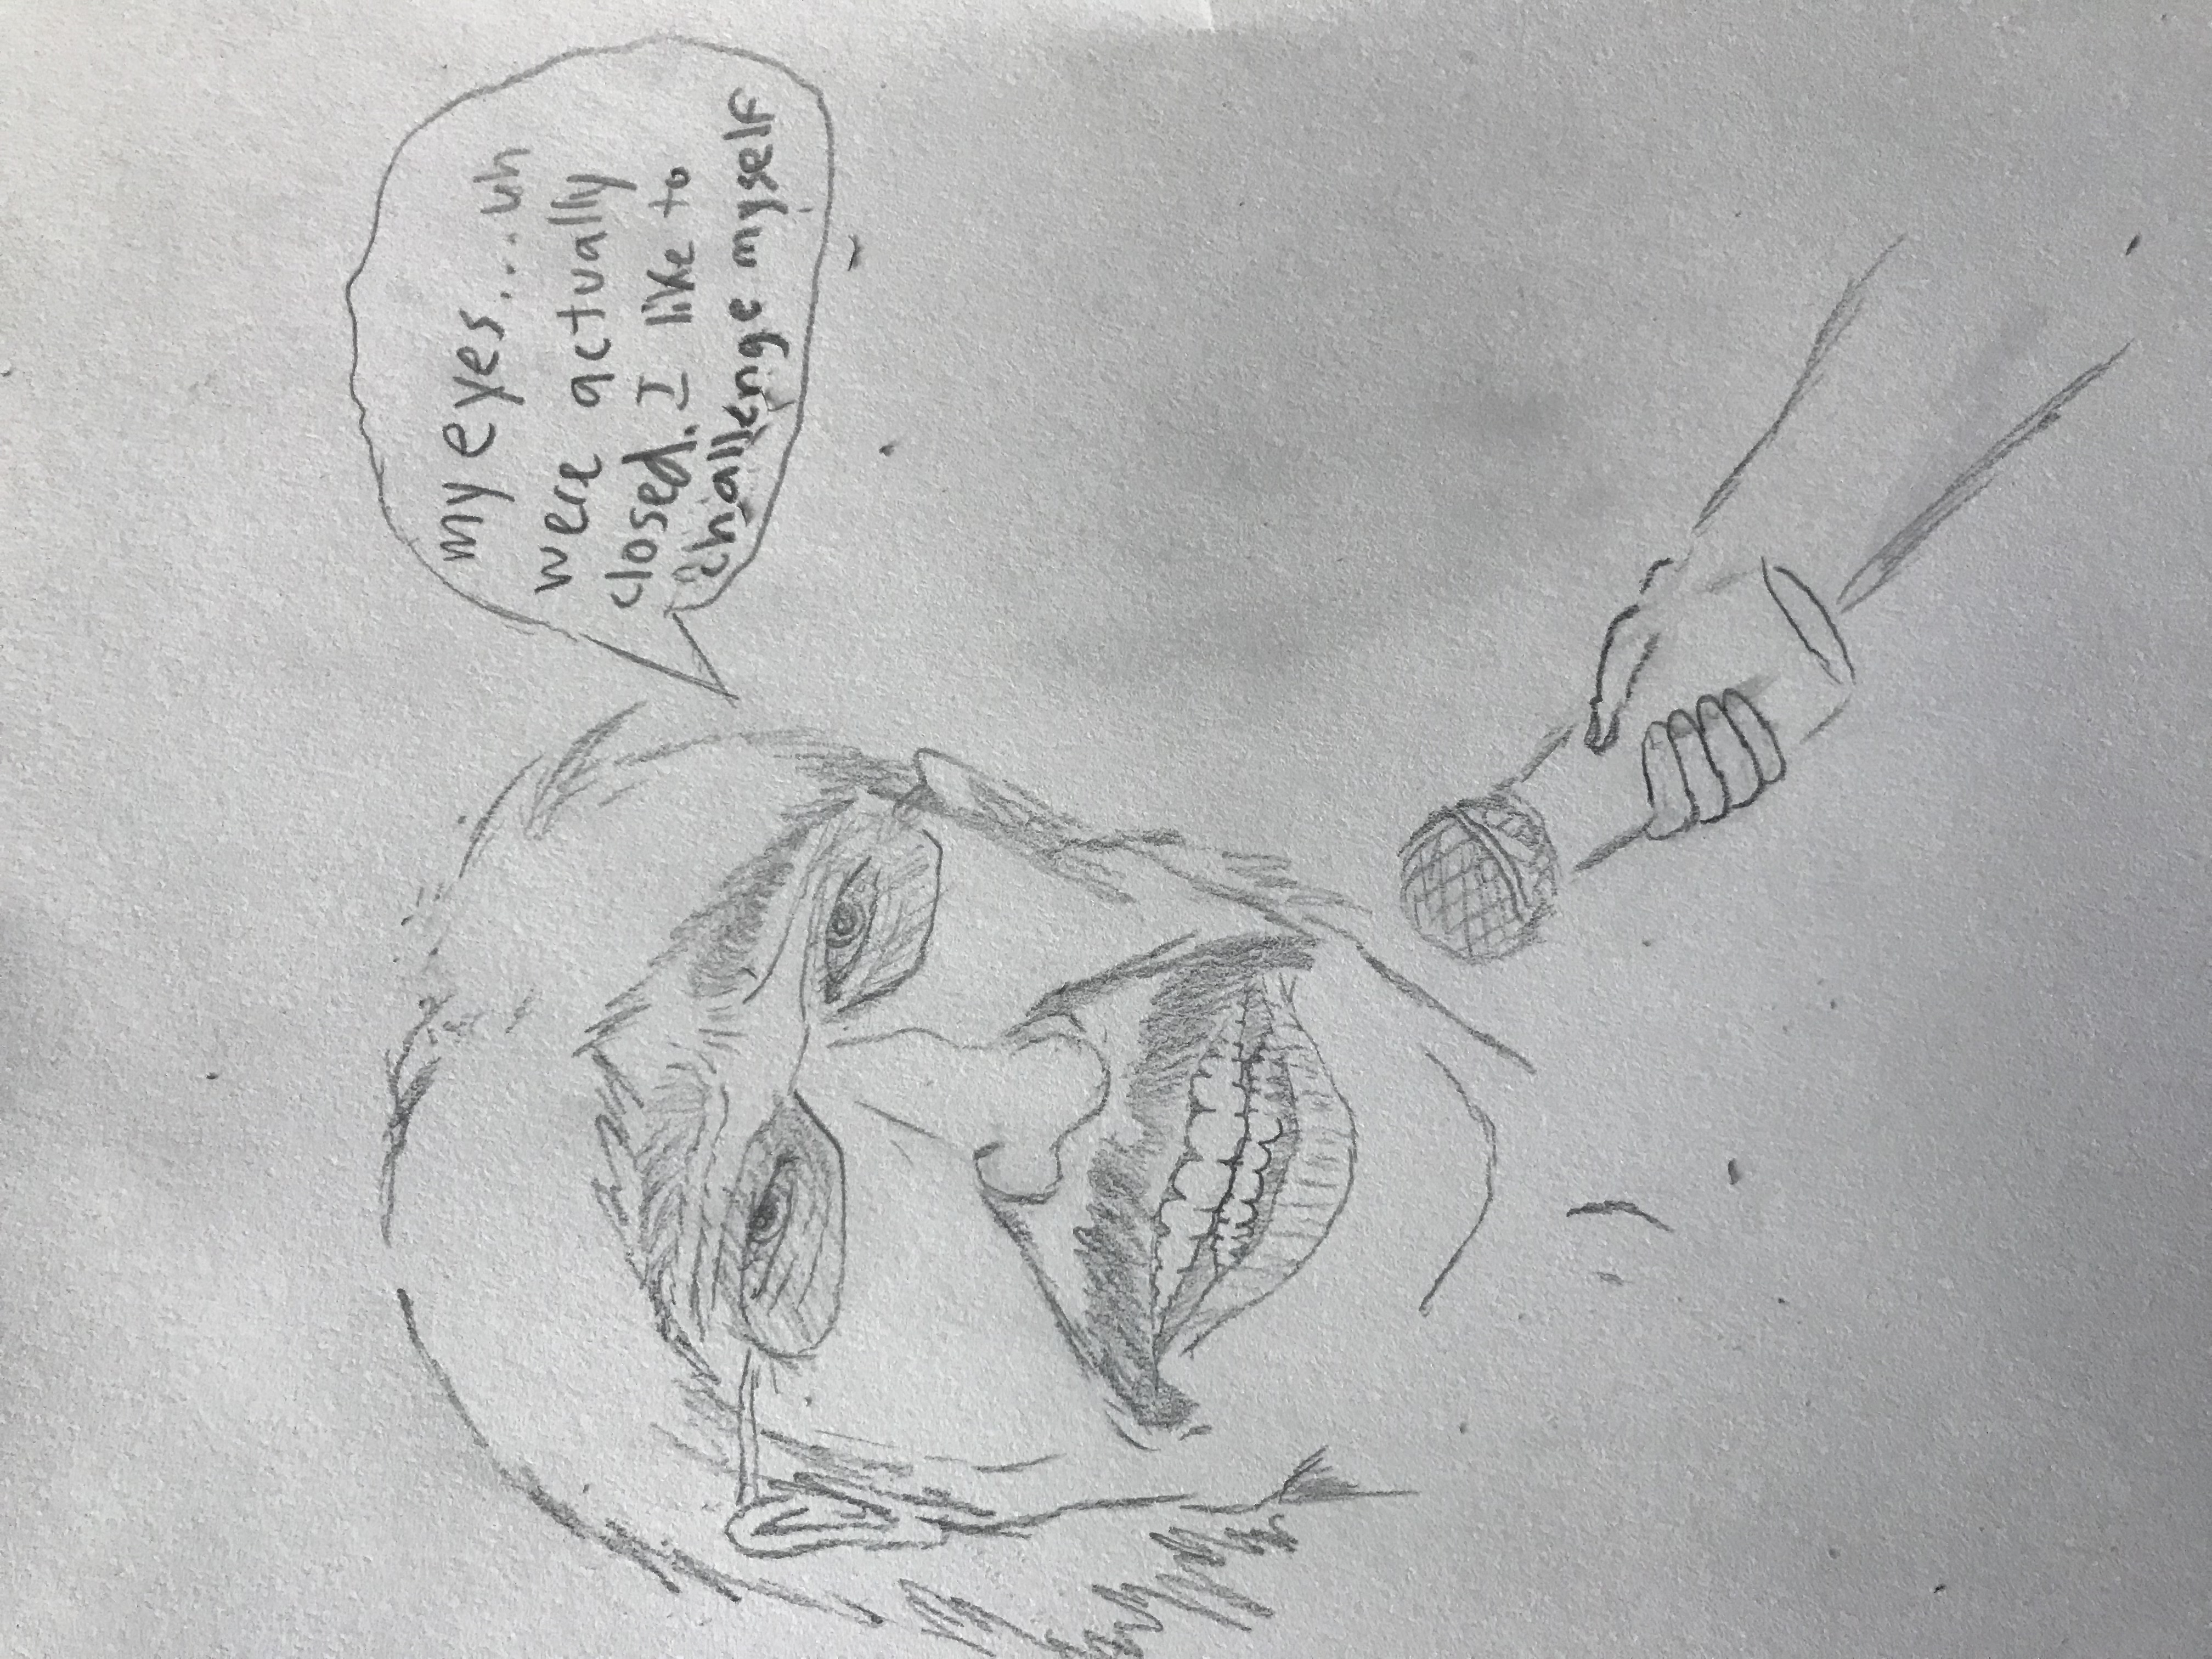 my eyes... uh
were actually
closed. I like to
challenge myself